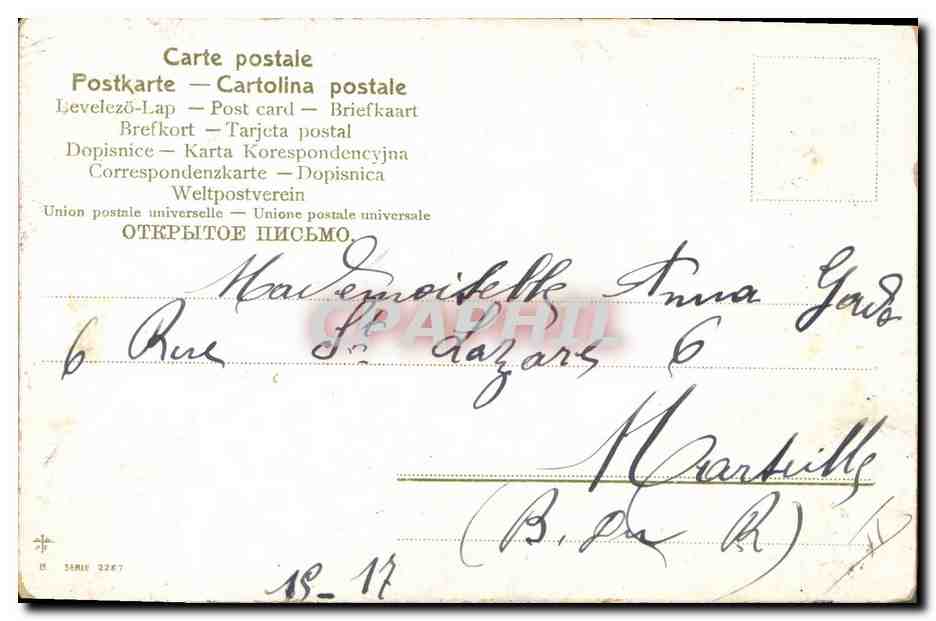 Carte postale
Postkarte — Cartolina postale
Levelező-Lap — Post card — Briefkaart
Brefkort — Tarjeta postal
Dopisnice — Karta Korespondencyjna
Correspondenzkarte — Dopisnica
Weltpostverein
Union postale universelle — Unione postale universale
ОТКРЫТОЕ ПИСЬМО.
Mademoiselle Anna
6 Rue St Lazare 6
CPAPHIL
Marseille
(B. du R)
SERIE 2267
19-17